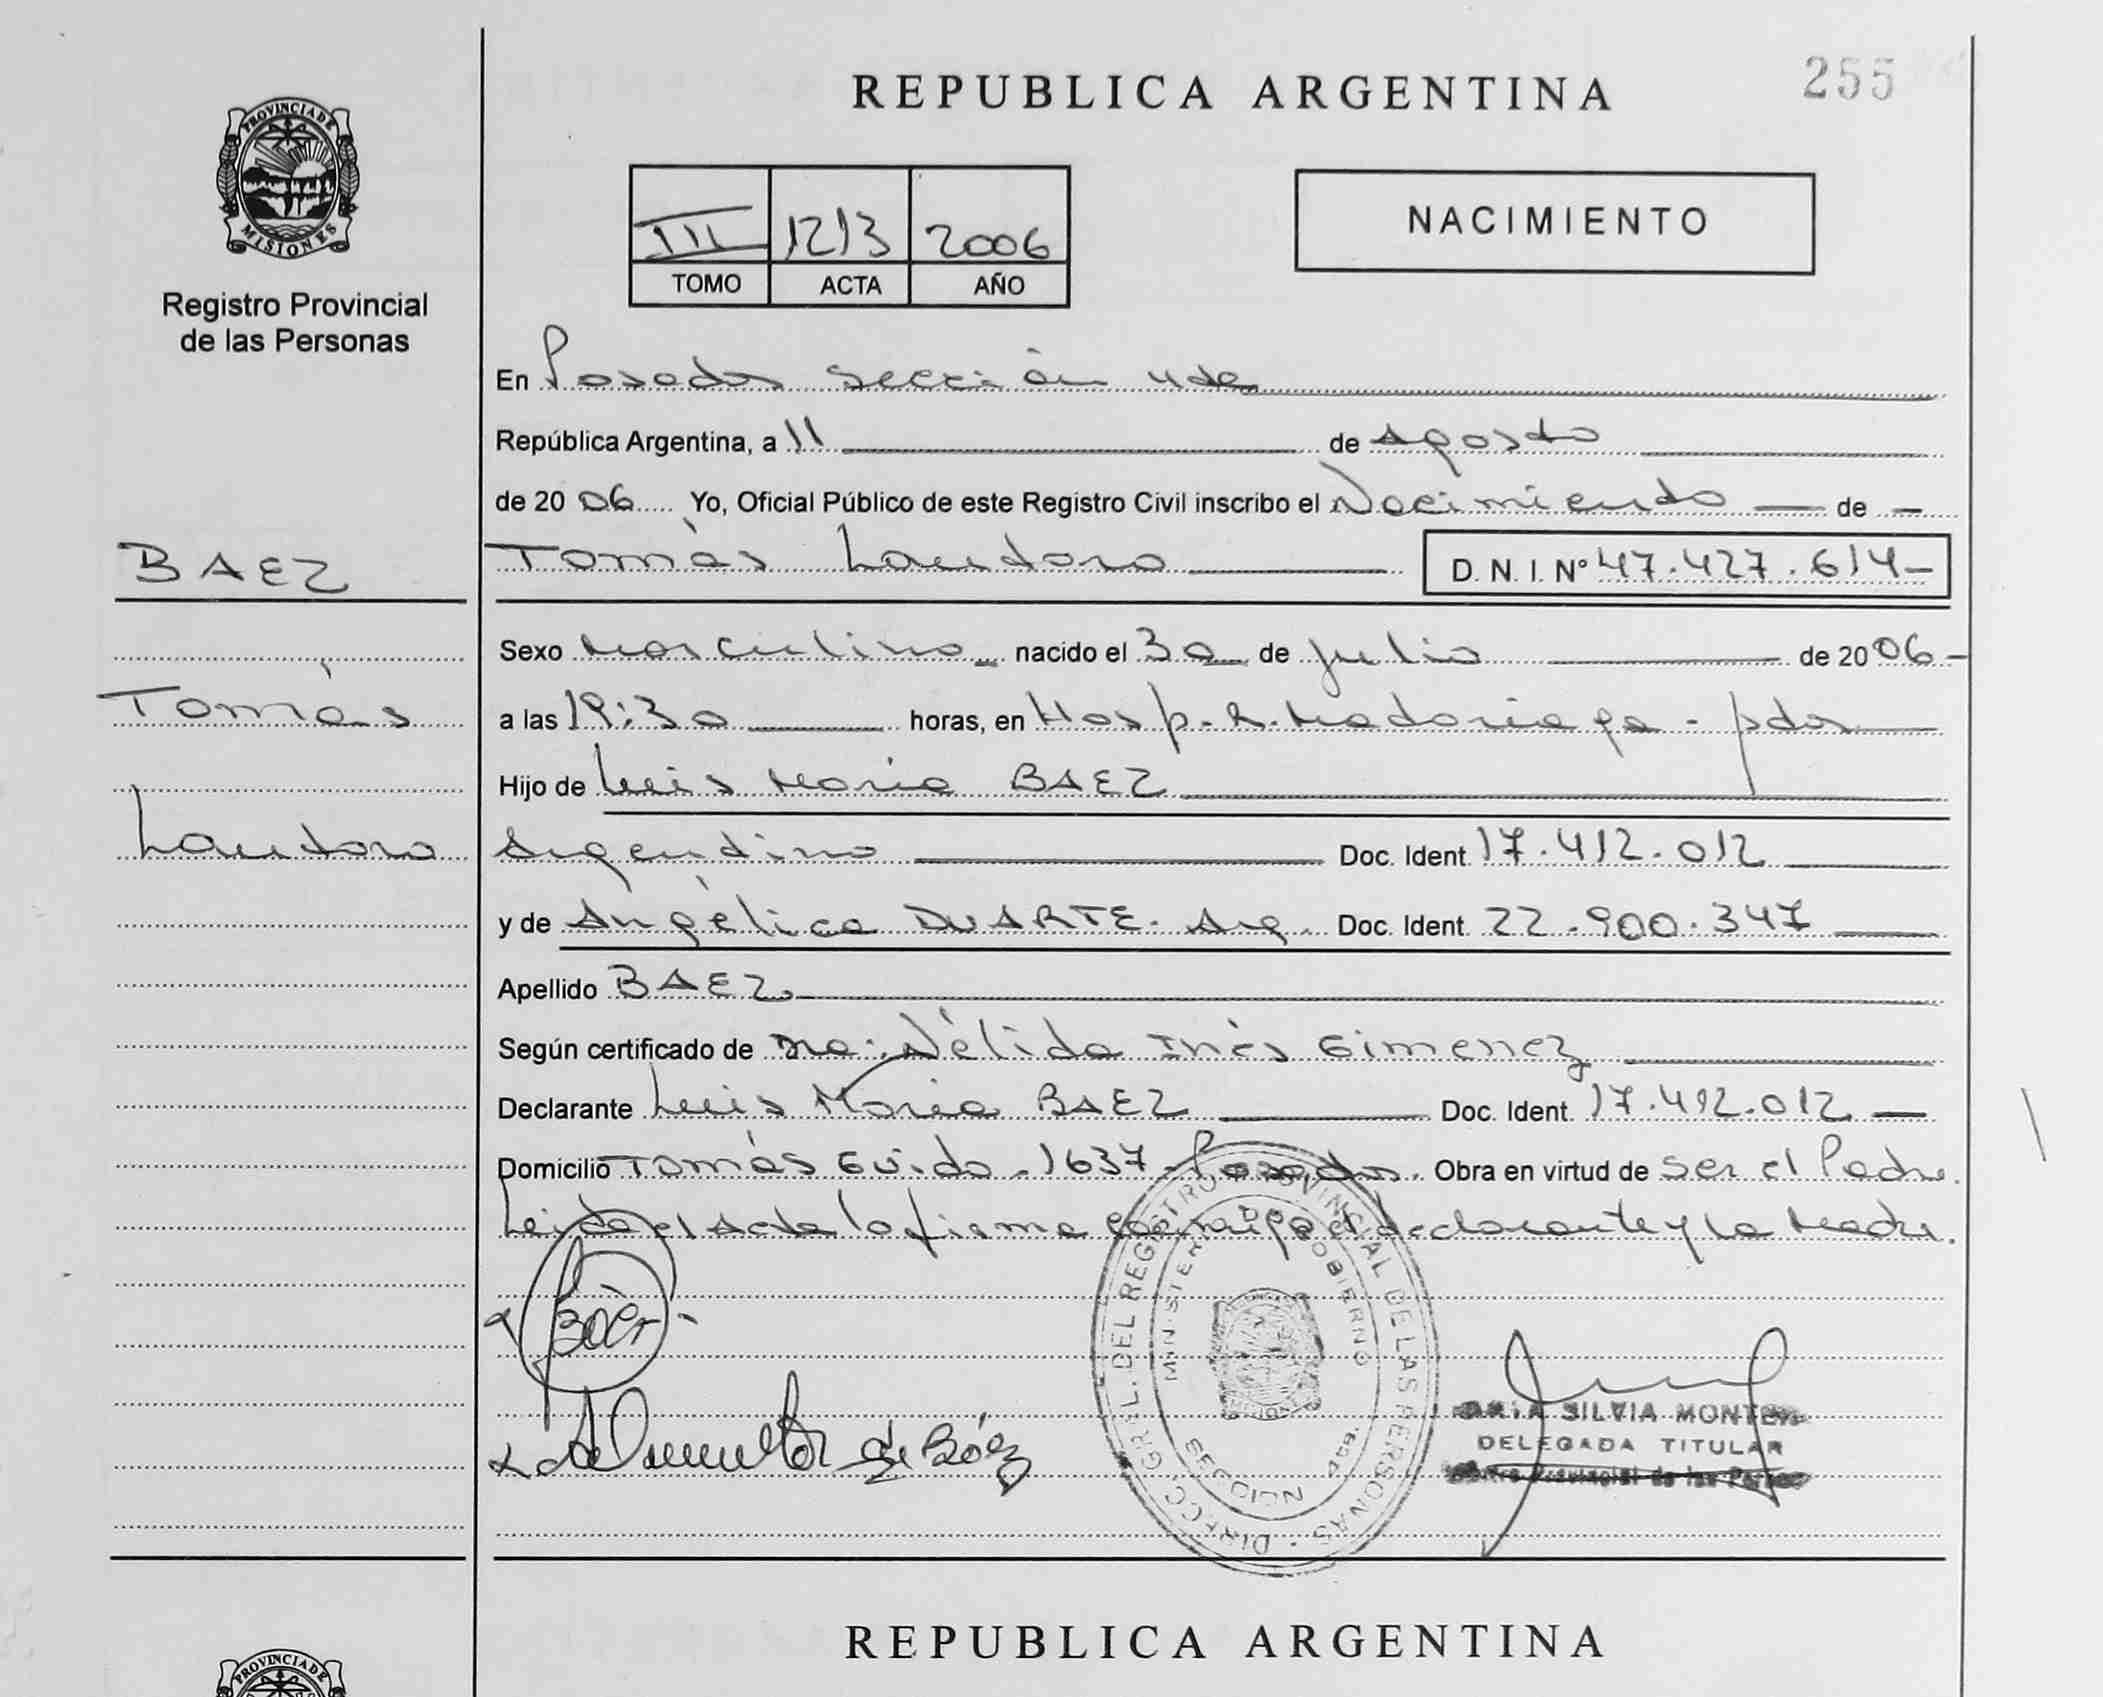 REPUBLICA ARGENTINA
255
PROVINCIA DE
MISIONES
Registro Provincial
de las Personas
III 1213 2006
TOMO ACTA AÑO
NACIMIENTO
En Posadas Sección 4ta
República Argentina, a 11 de Agosto
de 20 06 Yo, Oficial Público de este Registro Civil inscribo el Nacimiento de
BAEZ
Tomás Lautaro D. N. I. N° 47.427.614
Sexo Masculino nacido el 30 de julio de 20 06
Tomás
a las 19:30 horas, en Hosp. R. Madariaga - pdas
Hijo de Luis María BAEZ
Lautaro
Argentino Doc. Ident. 17.412.012
y de Angélica DUARTE. Arg. Doc. Ident. 22.900.347
Apellido BAEZ
Según certificado de Nélida Inés Gimenez
Declarante Luis María BAEZ Doc. Ident. 17.412.012
Domicilio Tomás Guido 1637 - Posadas. Obra en virtud de ser el Padre.
Leída el Acta la firma conmigo el declarante y la Madre.
Báez
de Báez
DIRECC. GRAL. DEL REGISTRO PROVINCIAL DE LAS PERSONAS
MINISTERIO DE GOBIERNO
SILVIA MONTE
DELEGADA TITULAR
Provincial de las
REPUBLICA ARGENTINA
PROVINCIA DE